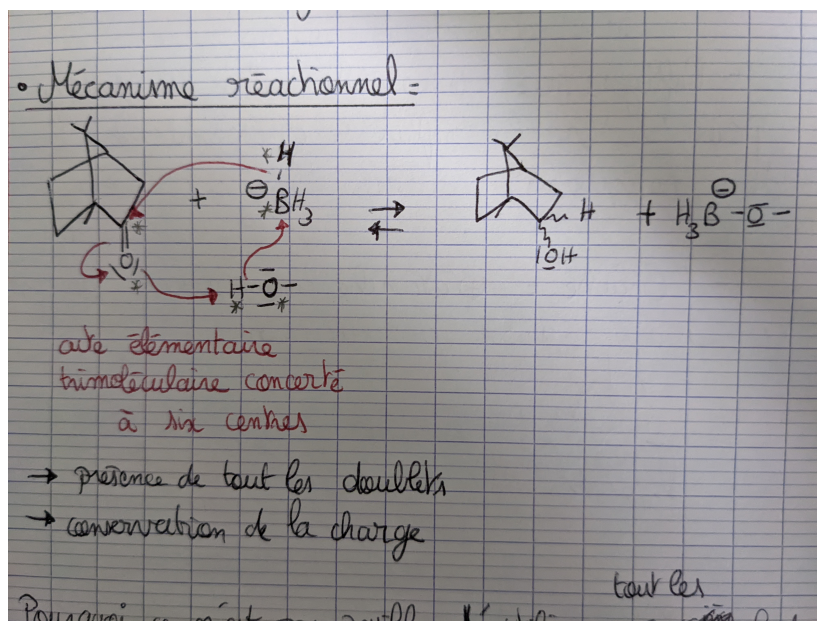 • Mécanisme réactionnel =
* H
+ ⊖ * BH3 ⇌ H + H3B ⊖ - O -
* OH
O * H - O -
* *
acte élémentaire
trimoléculaire concerté
à six centres
→ présence de tout les doublets
→ conservation de la charge
tout les
Pourquoi